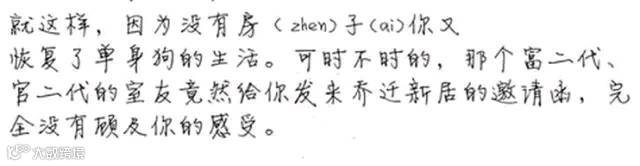 就这样，因为没有房（zhen）子（ai）你又
恢复了单身狗的生活。可时不时的，那个富二代、
官二代的室友竟然给你发来乔迁新居的邀请函，完
全没有顾及你的感受。
大数跨境